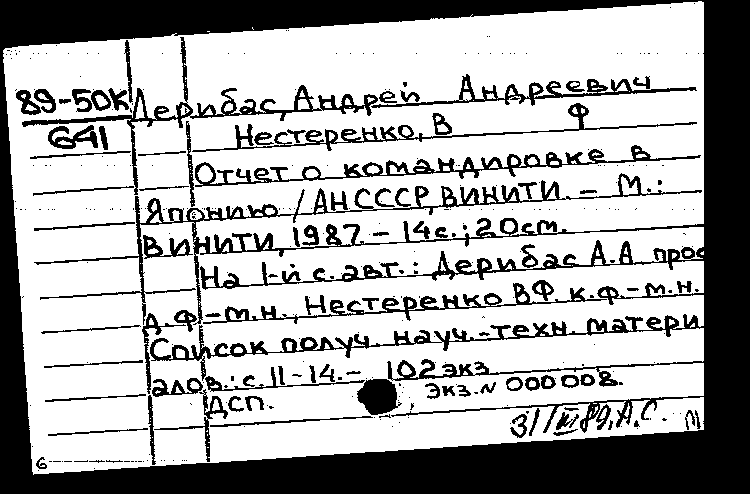 89-50К Дерибас, Андрей Андреевич
641 Нестеренко, В Ф
Отчет о командировке в
Японию / АН СССР, ВИНИТИ. – М.:
ВИНИТИ, 1987. – 14с.; 20см.
На 1-й с. авт.: Дерибас А.А проф
д.ф-м.н., Нестеренко ВФ к.ф.-м.н.
Список получ. науч.-техн. матери
алов.: с. 11-14. – 102 экз
ДСП. экз.N 000008.
31/III 89, А.С.
6